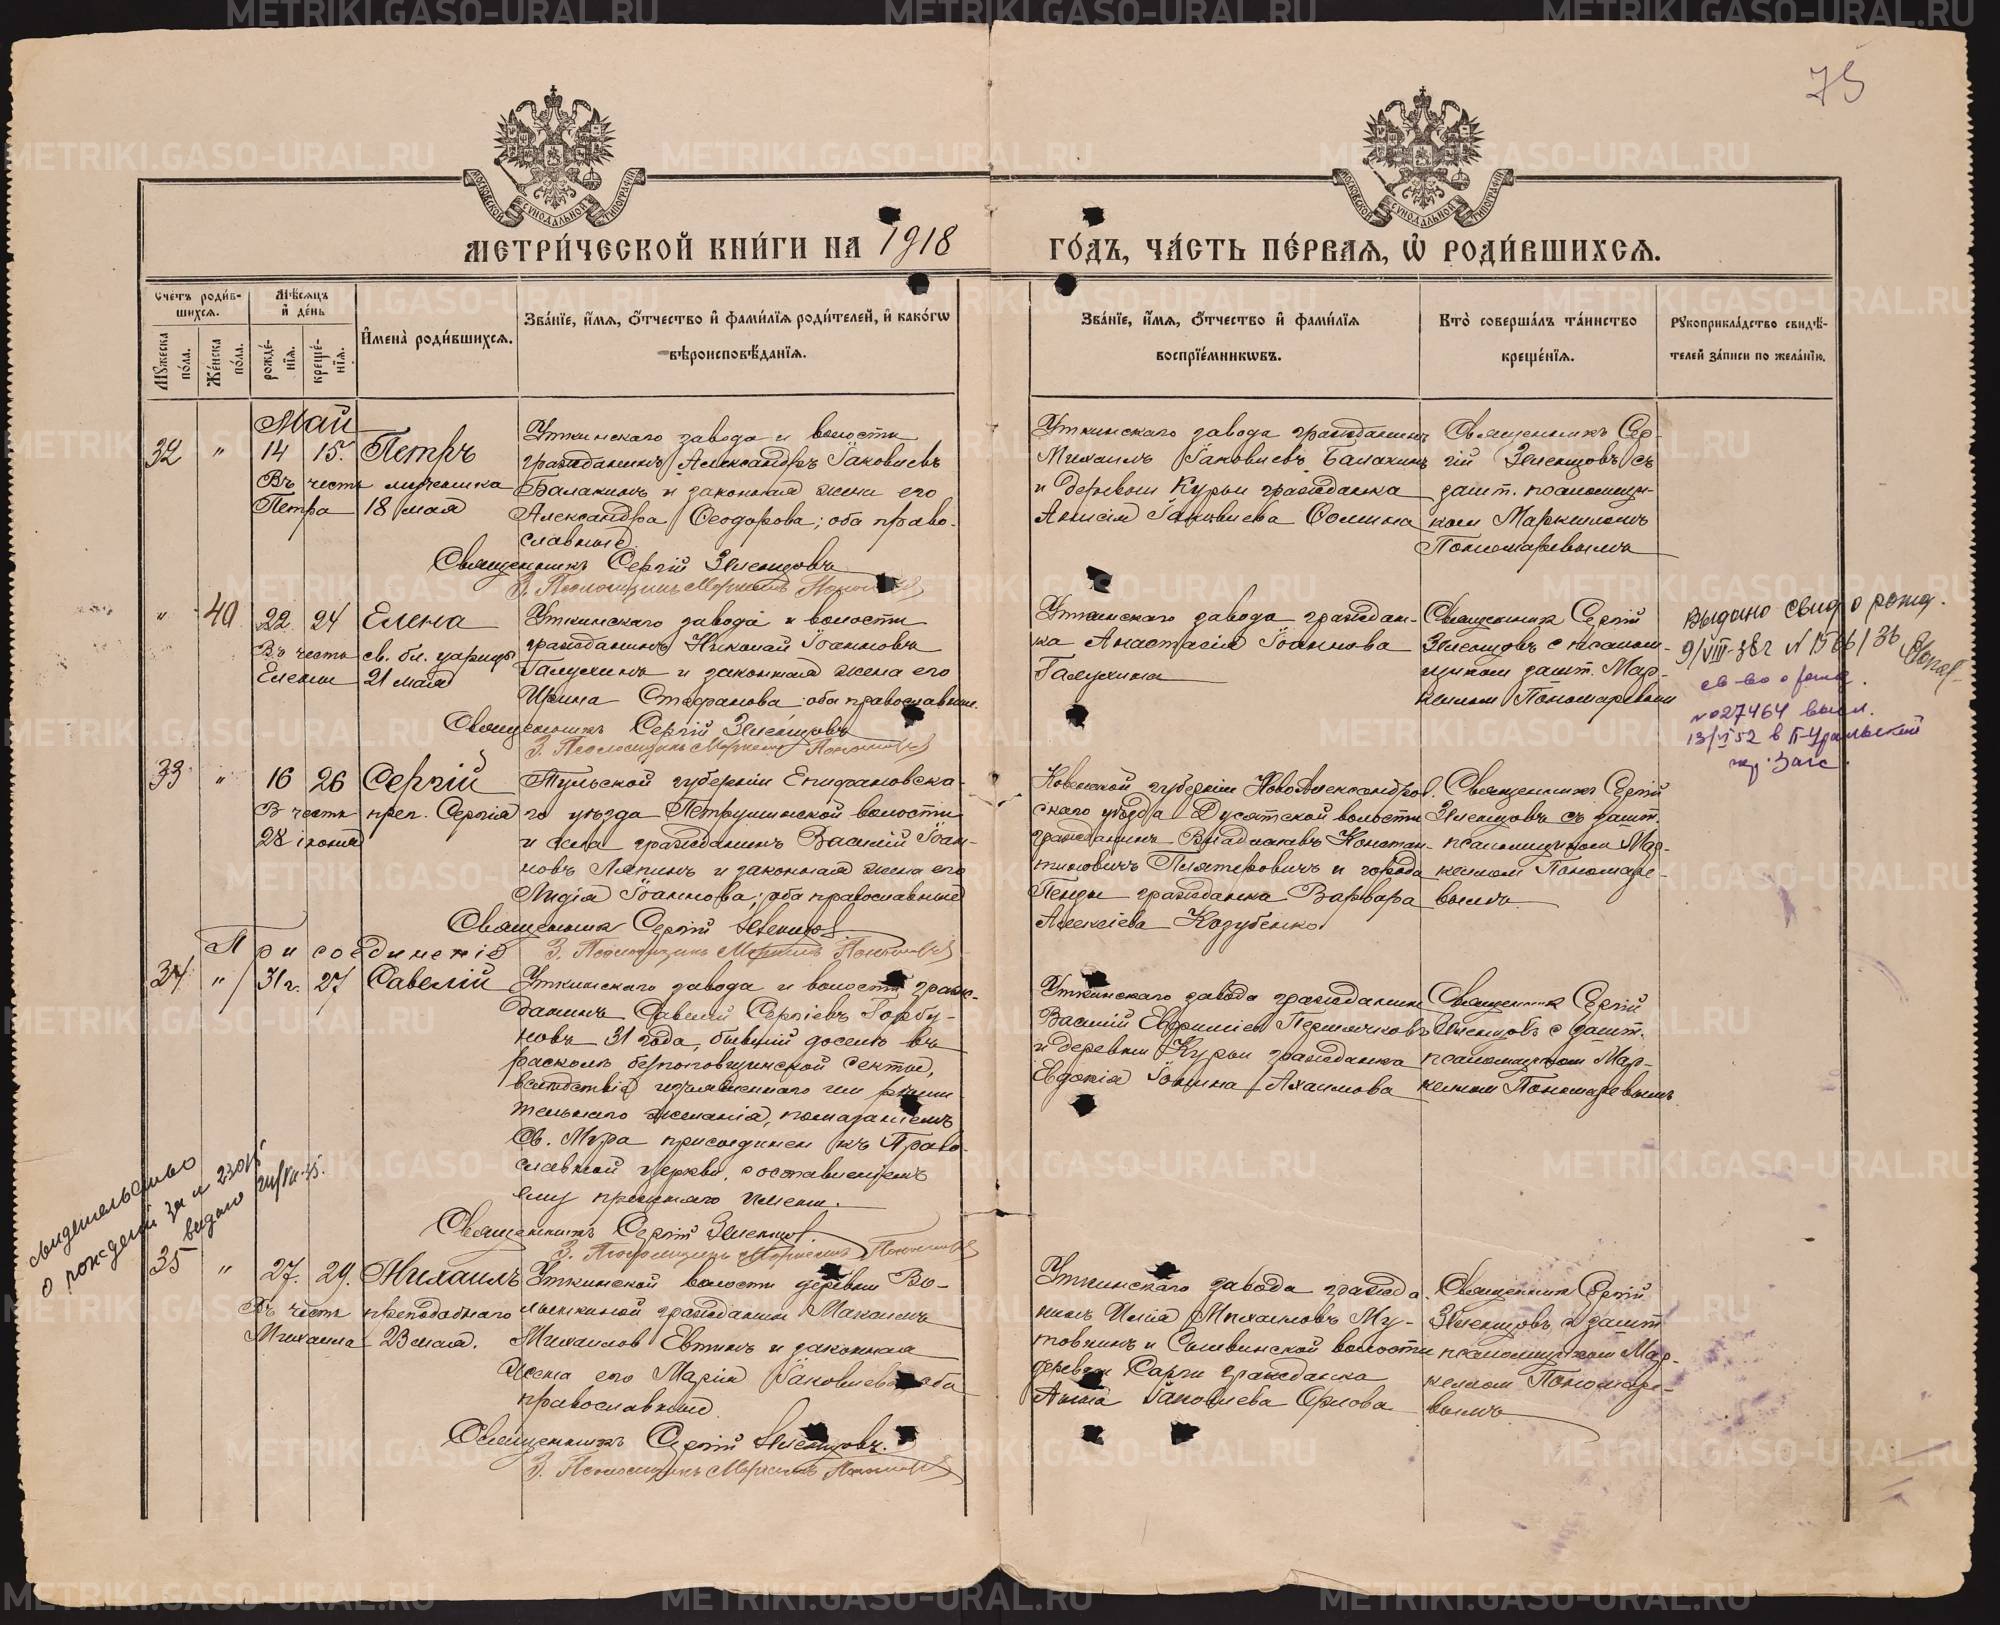 75
МОСКОВСКОЙ СѴНОДАЛЬНОЙ ТИПОГРАФІИ
МОСКОВСКОЙ СѴНОДАЛЬНОЙ ТИПОГРАФІИ
МЕТРИ́ЧЕСКОЙ КНИ́ГИ НА 1918
ГО́ДЪ, ЧА́СТЬ ПЕ́РВАЯ, Ѡ҆ РОДИ́ВШИХСЯ.
Счетъ роди́в-
шихся.
Мꙋжеска по́ла.
Же́нска по́ла.
Мѣсяцъ
и҆ де́нь
рожде́-
нїя.
креще́-
нїя.
И҆мена̀ роди́вшихся.
Зва́нїе, и҆́мя, ѻ҆́тчество и҆ фами́лїя роди́телей, и҆ како́гѡ
вѣроисповѣ́данїя.
Зва́нїе, и҆́мя, ѻ҆́тчество и҆ фами́лїя
воспрїе́мникѡвъ.
Кто̀ соверша́лъ та́инство
креще́нїя.
Рꙋкоприкла́дство свидѣ́-
телей за́писи по жела́нїю.
Май
32 " 14 15. Петръ
Въ честь мученика
Петра 18 мая
Уткинскаго завода и волости
гражданинъ Александръ Іаковлевъ
Балакинъ и законная жена его
Александра Ѳеодорова; оба право-
славные.
Священникъ Сергій Зленцовъ
З. Псаломщикъ Маркеллъ
Уткинскаго завода гражданинъ
Михаилъ Іаковлевъ Балакинъ
и деревни Курьи гражданка
Анисія Іаковлева Сомина
Священникъ Сер-
гій Зленцовъ съ
зашт. псаломщи-
ком Маркиломъ
Пономаревымъ
" 40 22 24 Елена
Въ честь св. бл. царицы
Елены 21 мая
Уткинскаго завода и волости
гражданинъ Николай Іоанновъ
Галухинъ и законная жена его
Ирина Стефанова оба православные.
Священникъ Сергій Зленцовъ
З. Псаломщикъ Маркеллъ
Уткинскаго завода граждан-
ка Анастасія Іоаннова
Галухина
Священник Сергій
Зленцовъ с псалом-
щиком зашт. Мар-
келлом Пономаревым
Выдано свид о рожд.
9/VIII-36г
св-во о рожд.
№ 27464 выд.
13/VI 52 в П-Уральский
гор. Загс.
33 " 16 26 Сергій
В честь преп. Сергія
28 іюня
Тульской губерніи Епифановска-
го уѣзда Петрушинской волости
и села гражданинъ Василій Іоан-
новъ Ляпинъ и законная жена его
Лидія Іоаннова; оба православные
Священник Сергій Зленцов
З. Псаломщикъ Маркеллъ
Ковенской губерніи НовоАлександров.
скаго уѣзда Дусятской волости
гражданинъ Владиславъ Констан-
тиновичъ Плятеровичъ и города
Пензы гражданка Варвара
Алексіева Козубенко
Священникъ Сергій
Зленцовъ съ зашт.
псаломщиком Мар-
келлом Пономаре-
вымъ
Присоединеніе
34 " 31 г. 27 Савелій
Уткинскаго завода и волости граж-
данинъ Савелій Сергіевъ Горбу-
новъ 31 года, бывшій доселѣ въ
расколѣ безпоповщинской секты,
вслѣдствіе изъявленнаго им рѣши
тельнаго желанія, помазаніемъ
Св. Мѵра присоединен къ Право-
славной церкви, с оставленіемъ
ему прежняго имени.
Священникъ Сергій Зленцов.
З. Псаломщикъ Маркеллъ
Уткинскаго завода гражданин
Василій
и деревни Курьи гражданка
Евдокія
Священник Сергій
Зленцовъ с зашт.
псаломщиком Мар-
келлом Пономаревымъ
свидетельство
о рождении за
выдано
35 " 27. 29. Михаилъ
Въ честь преподобнаго
Михаила 23 мая.
Уткинской волости деревни
гражданин
Михаилов Евтинъ и законная
жена его Марія Іаковлева оба
православные
Священникъ Сергій Зленцовъ.
З. Псаломщикъ Маркеллъ
Уткинскаго завода гражда-
нинъ Илія Михаиловъ Му-
товкинъ и Сылвинской волости
деревни Сарги гражданка
Анна Іаковлева Орлова
Священник Сергій
Зленцовъ с зашт
псаломщиком Мар-
келлом Пономаре-
вымъ
METRIKI.GASO-URAL.RU